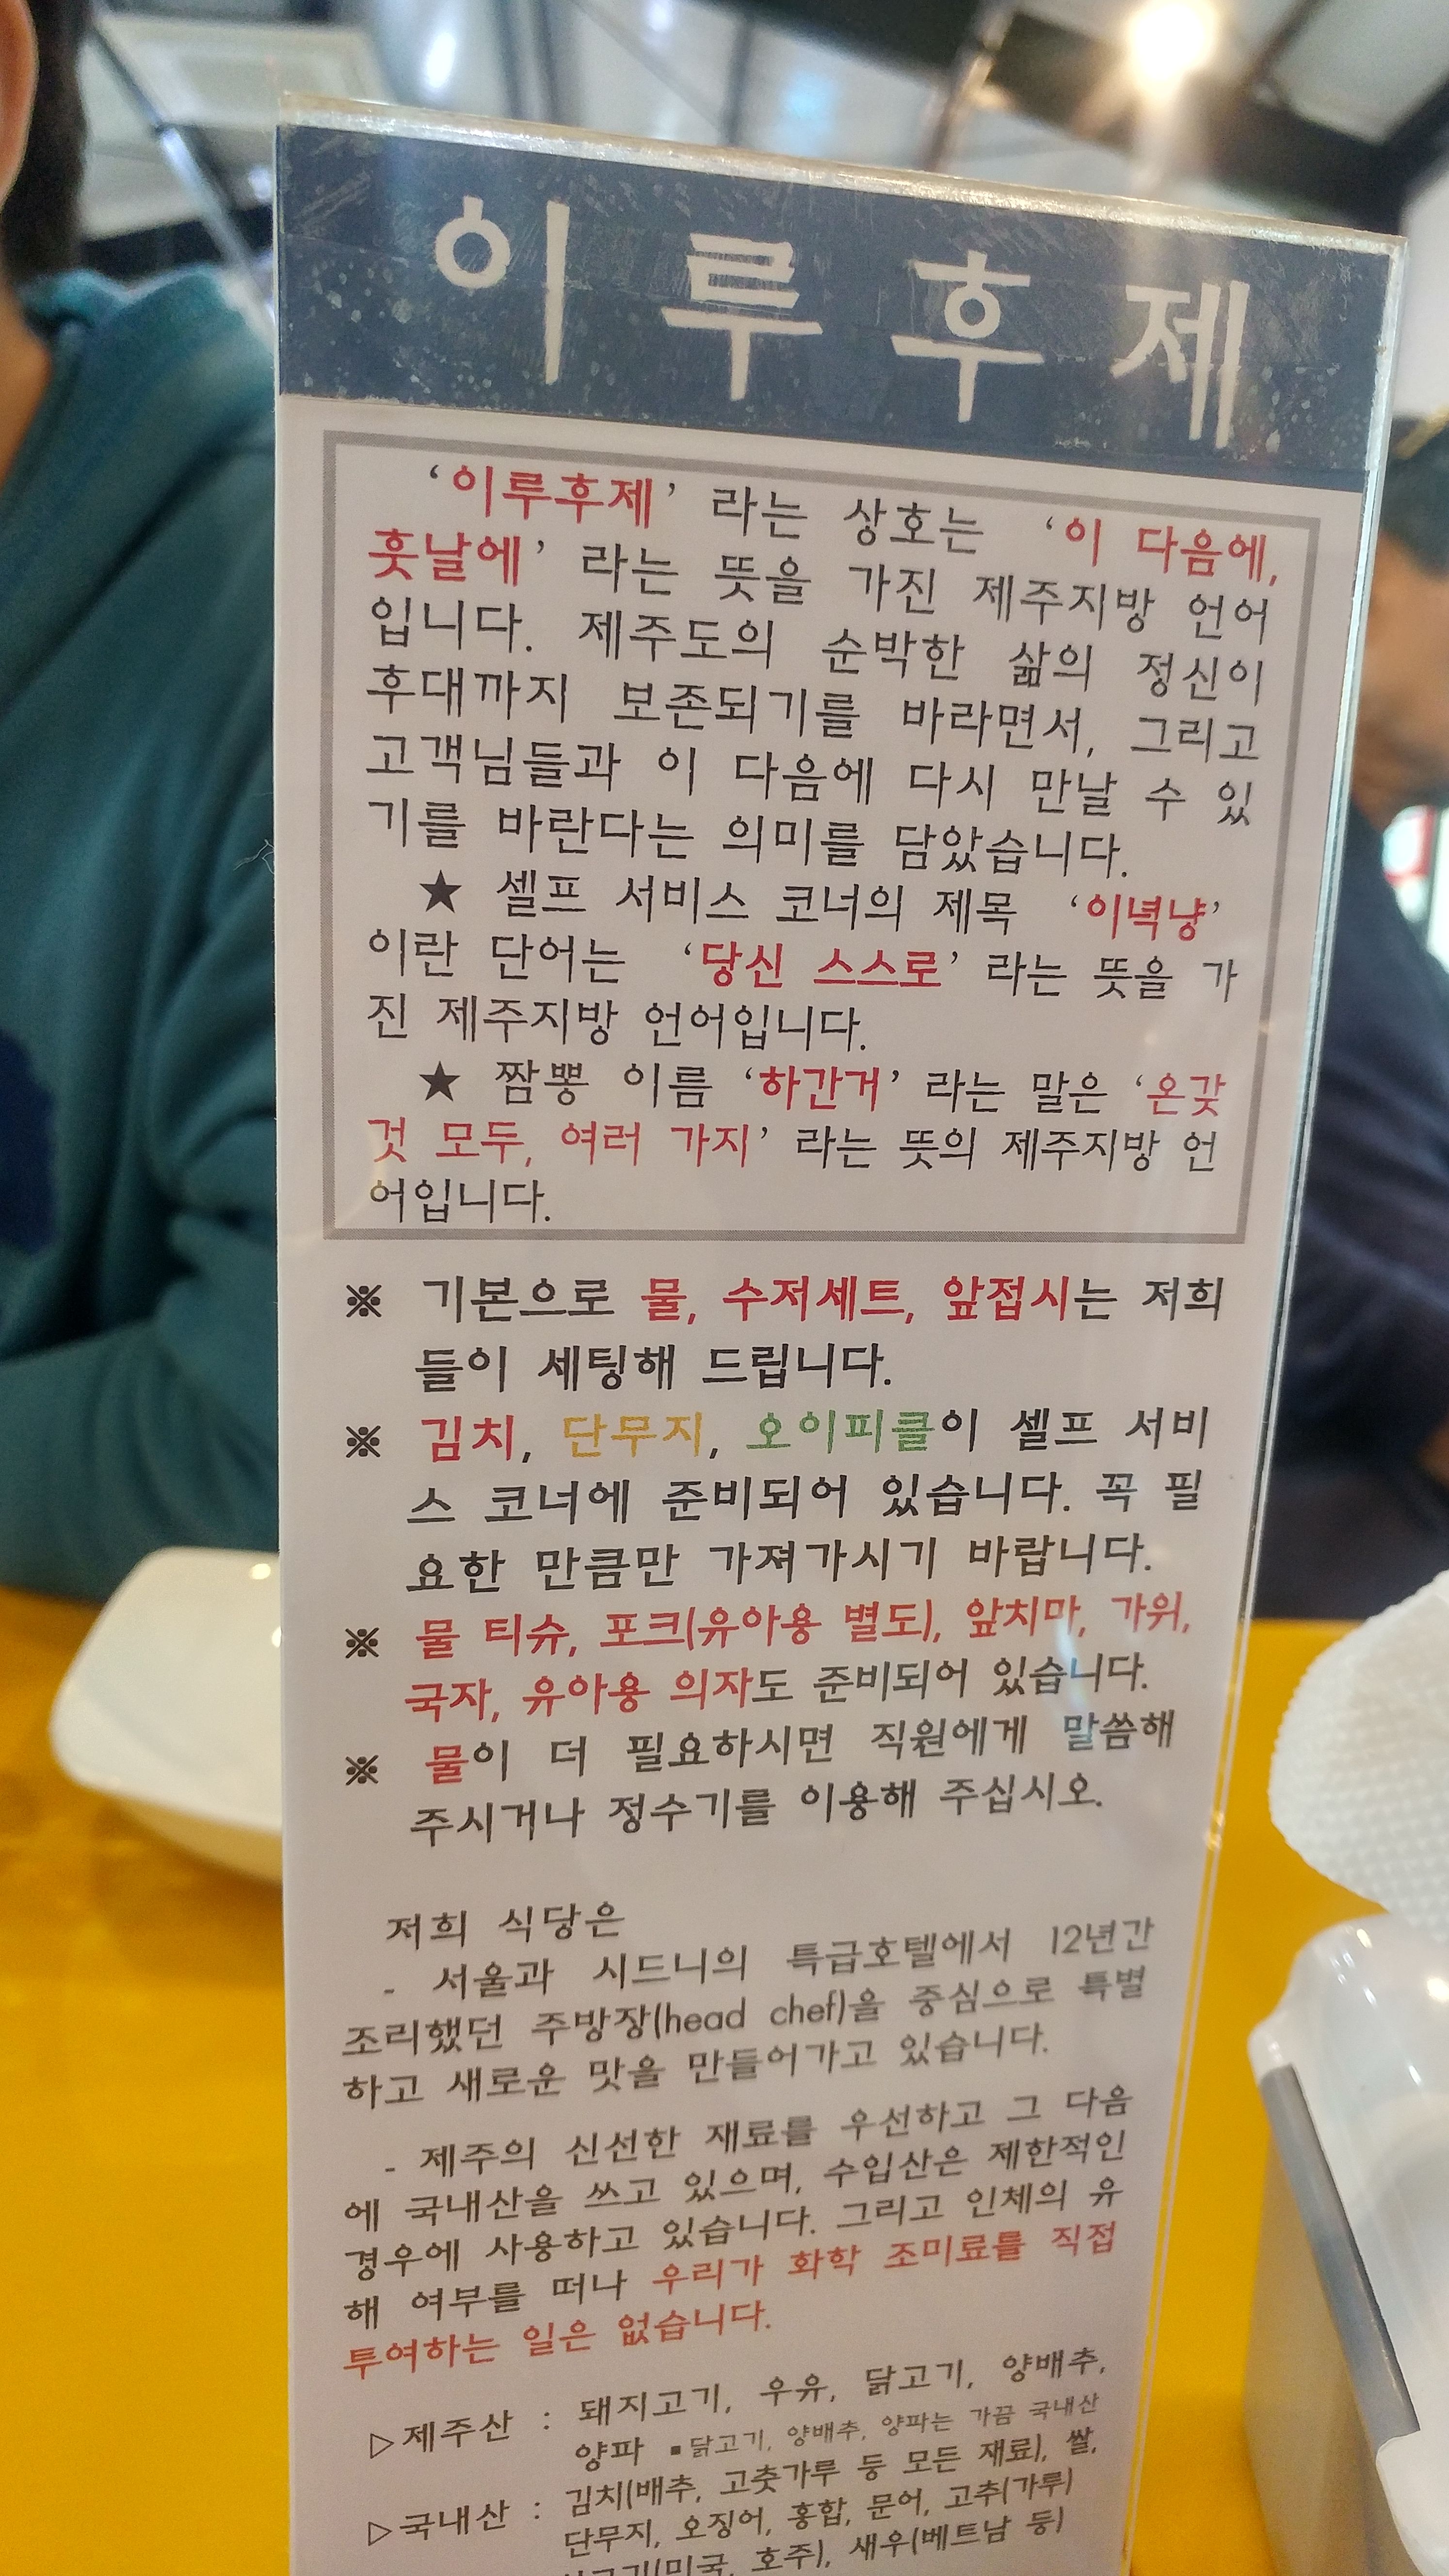 이루후제
‘이루후제’ 라는 상호는 ‘이 다음에,
훗날에’ 라는 뜻을 가진 제주지방 언어
입니다. 제주도의 순박한 삶의 정신이
후대까지 보존되기를 바라면서, 그리고
고객님들과 이 다음에 다시 만날 수 있
기를 바란다는 의미를 담았습니다.
★ 셀프 서비스 코너의 제목 ‘이녁냥’
이란 단어는 ‘당신 스스로’ 라는 뜻을 가
진 제주지방 언어입니다.
★ 짬뽕 이름 ‘하간거’ 라는 말은 ‘온갖
것 모두, 여러 가지’ 라는 뜻의 제주지방 언
어입니다.
※ 기본으로 물, 수저세트, 앞접시는 저희
들이 세팅해 드립니다.
※ 김치, 단무지, 오이피클이 셀프 서비
스 코너에 준비되어 있습니다. 꼭 필
요한 만큼만 가져가시기 바랍니다.
※ 물 티슈, 포크(유아용 별도), 앞치마, 가위,
국자, 유아용 의자도 준비되어 있습니다.
※ 물이 더 필요하시면 직원에게 말씀해
주시거나 정수기를 이용해 주십시오.
저희 식당은
- 서울과 시드니의 특급호텔에서 12년간
조리했던 주방장(head chef)을 중심으로 특별
하고 새로운 맛을 만들어가고 있습니다.
- 제주의 신선한 재료를 우선하고 그 다음
에 국내산을 쓰고 있으며, 수입산은 제한적인
경우에 사용하고 있습니다. 그리고 인체의 유
해 여부를 떠나 우리가 화학 조미료를 직접
투여하는 일은 없습니다.
▷제주산 : 돼지고기, 우유, 닭고기, 양배추,
양파 ▪닭고기, 양배추, 양파는 가끔 국내산
▷국내산 : 김치(배추, 고춧가루 등 모든 재료), 쌀,
단무지, 오징어, 홍합, 문어, 고추(가루)
(미국, 호주), 새우(베트남 등)